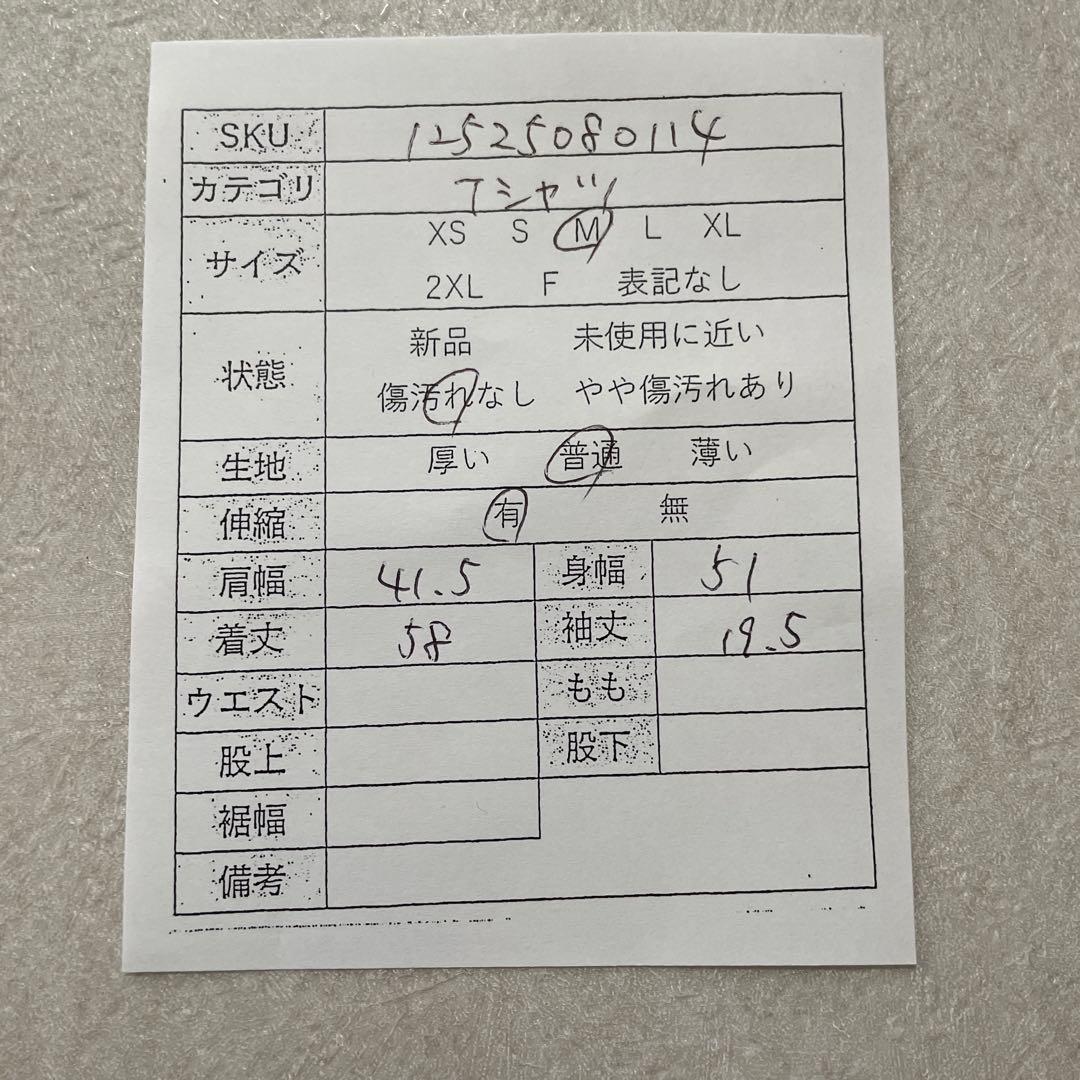 SKU 12525080114
カテゴリ Tシャツ
サイズ XS S M L XL
2XL F 表記なし
状態 新品 未使用に近い
傷汚れなし やや傷汚れあり
生地 厚い 普通 薄い
伸縮 有 無
肩幅 41.5 身幅 51
着丈 58 袖丈 19.5
ウエスト もも
股上 股下
裾幅
備考